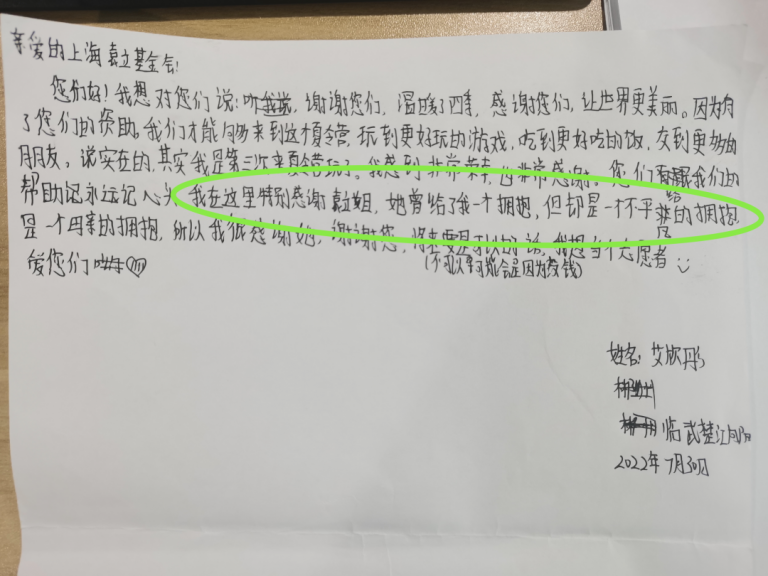 亲爱的上海袁立基金会!
您们好!我想对您们说:谢谢您们,温暖了四季,感谢您们,让世界更美丽。因为有
了您们的资助。我们才能够来到这个夏令营,玩到更好玩的游戏,吃到更好吃的饭,交到更多的
朋友。说实在的,其实我是第三次来夏令营玩了。我感到非常荣幸,也非常感谢。您们给我们的
帮助记永远记心头,我在这里特别感谢袁立姐,她曾给了我一个拥抱,但却是一个不平凡的拥抱
是一个母亲的拥抱,所以我很感谢她,谢谢您,将来要是可以的话,我想当个志愿者
(不可以可能会是因为没钱)
爱您们
姓名:艾欣彤
临武楚江
2022年7月30日